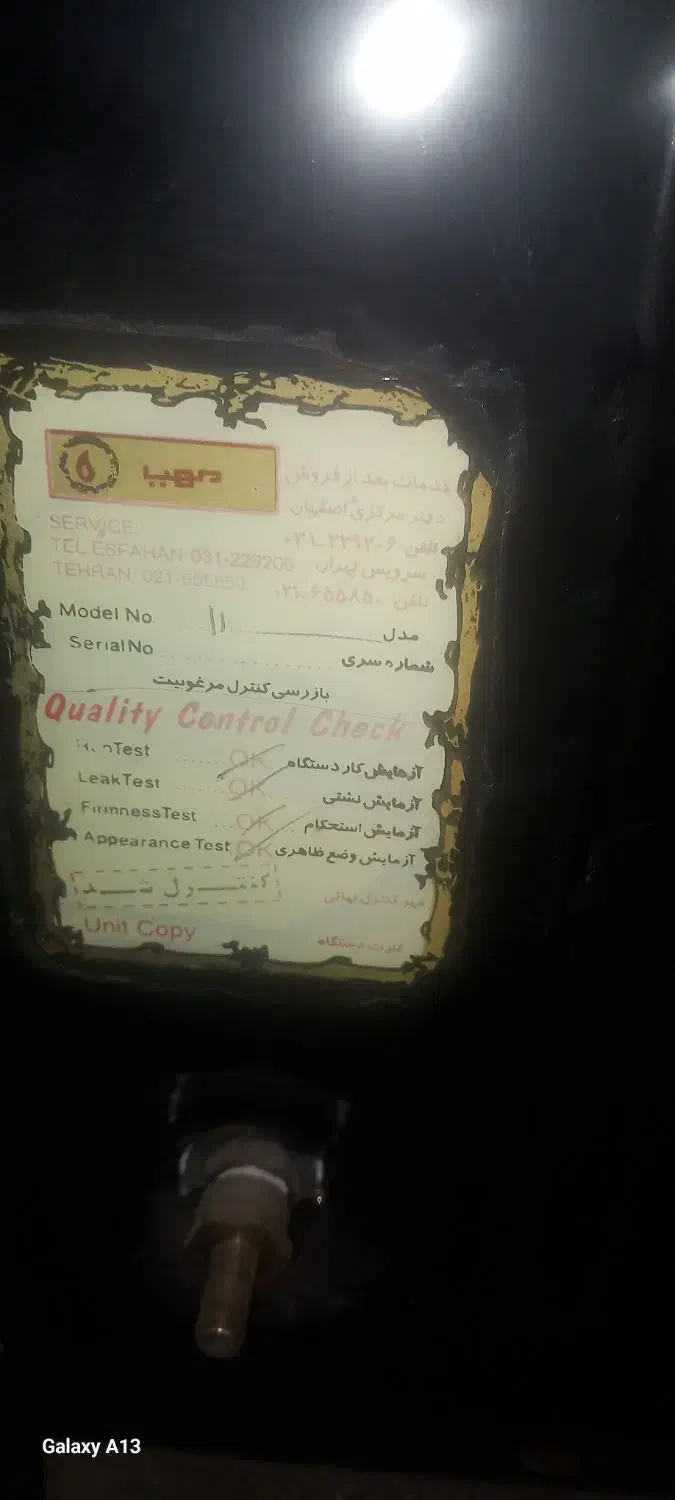 خدمات بعد از فروش
دفتر مرکزی اصفهان
SERVICE:
TEL ESFAHAN 031-229206
تلفن ۲۲۹۲۰۶-۰۳۱
سرویس تهران
TEHRAN: 021-655850
تلفن ۶۵۵۸۵۰-۰۲۱
Model No 11 مدل
Serial No شماره سری
بازرسی کنترل مرغوبیت
Quality Control Check
Test OK آزمایش کار دستگاه
Leak Test OK آزمایش نشتی
Firmness Test OK آزمایش استحکام
Appearance Test OK آزمایش وضع ظاهری
کنترل شد
مهر کنترل نهائی
Unit Copy
کارت دستگاه
Galaxy A13